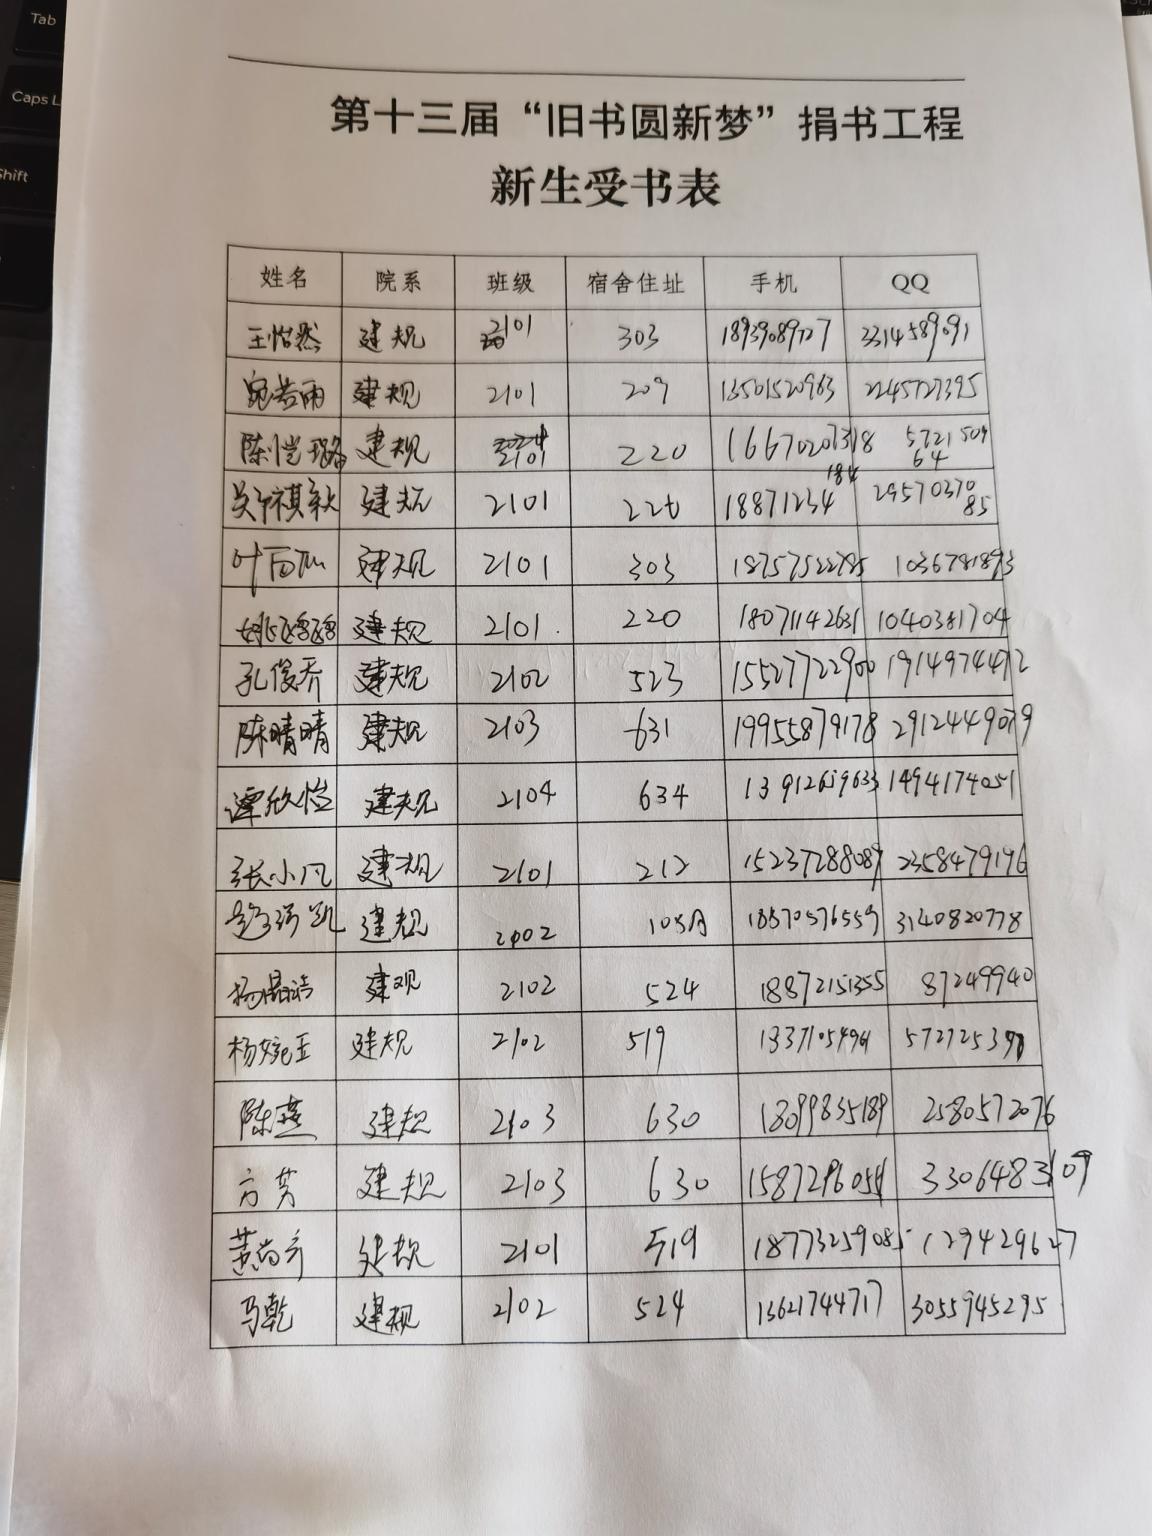 第十三届“旧书圆新梦”捐书工程
新生受书表
姓名 院系 班级 宿舍住址 手机 QQ
王怡然 建规 2101 303 18939089727 3314589091
宛若雨 建规 2101 209 13501520963 2245727395
陈恺璐 建规 2101 220 16670207318 572150964
建规 2101 220 18871234184 2957037085
叶 建规 2101 303 18757522785 1036781893
姚 建规 2101 220 18071142631 1040381704
孔俊乔 建规 2102 523 15527722900 1914974472
陈晴晴 建规 2103 631 19955879178 2912449079
谭欣恺 建规 2104 634 13912619633 1494174051
张小凡 建规 2101 212 15237288089 2358479196
建规 105 18570576559 3140820778
杨 建规 2102 524 18872151355 87249940
杨婉玉 建规 2102 519
陈燕 建规 2103 630 18099835189 2580572076
方芳 建规 2103 630 3306483109
黄尚齐 建规 2101 519 18773259085 129429627
马乾 建规 2102 524 13621744717 3055945295